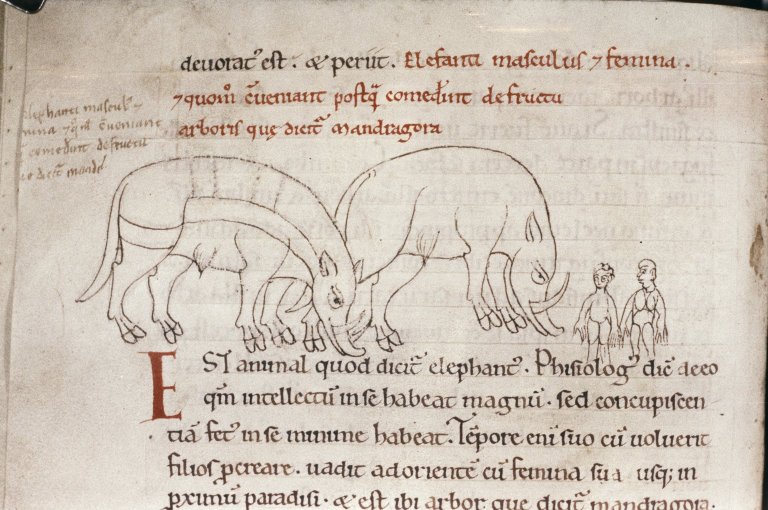 deuorat᷒ est · & periit · Elefanti masculus ⁊ femina
⁊ quom̅ c̅ueniant postq̅ comed̅unt de fructu
arboris quę dicit᷒ Mandragora
elephanti mascul᷒ ⁊
mina ⁊ q̅m c̅ueniant
comed̅unt de fructu
dicit᷒
EST animal quod dicit᷒ elephant᷒ · Phisiolog᷒ dic̅ de eo
qm̅ intellectu̅ in se habeat magnu̅ · sed concupiscen
tia̅ fet᷒ in se minime habeat. Te̅pore eni̅ suo cu̅ uoluerit
filios p̱creare · uadit ad oriente̅ cu̅ femina sua usq; in
p̱ximu̅ paradisi · & est ibi arbor que dicit᷒ mandragora ·